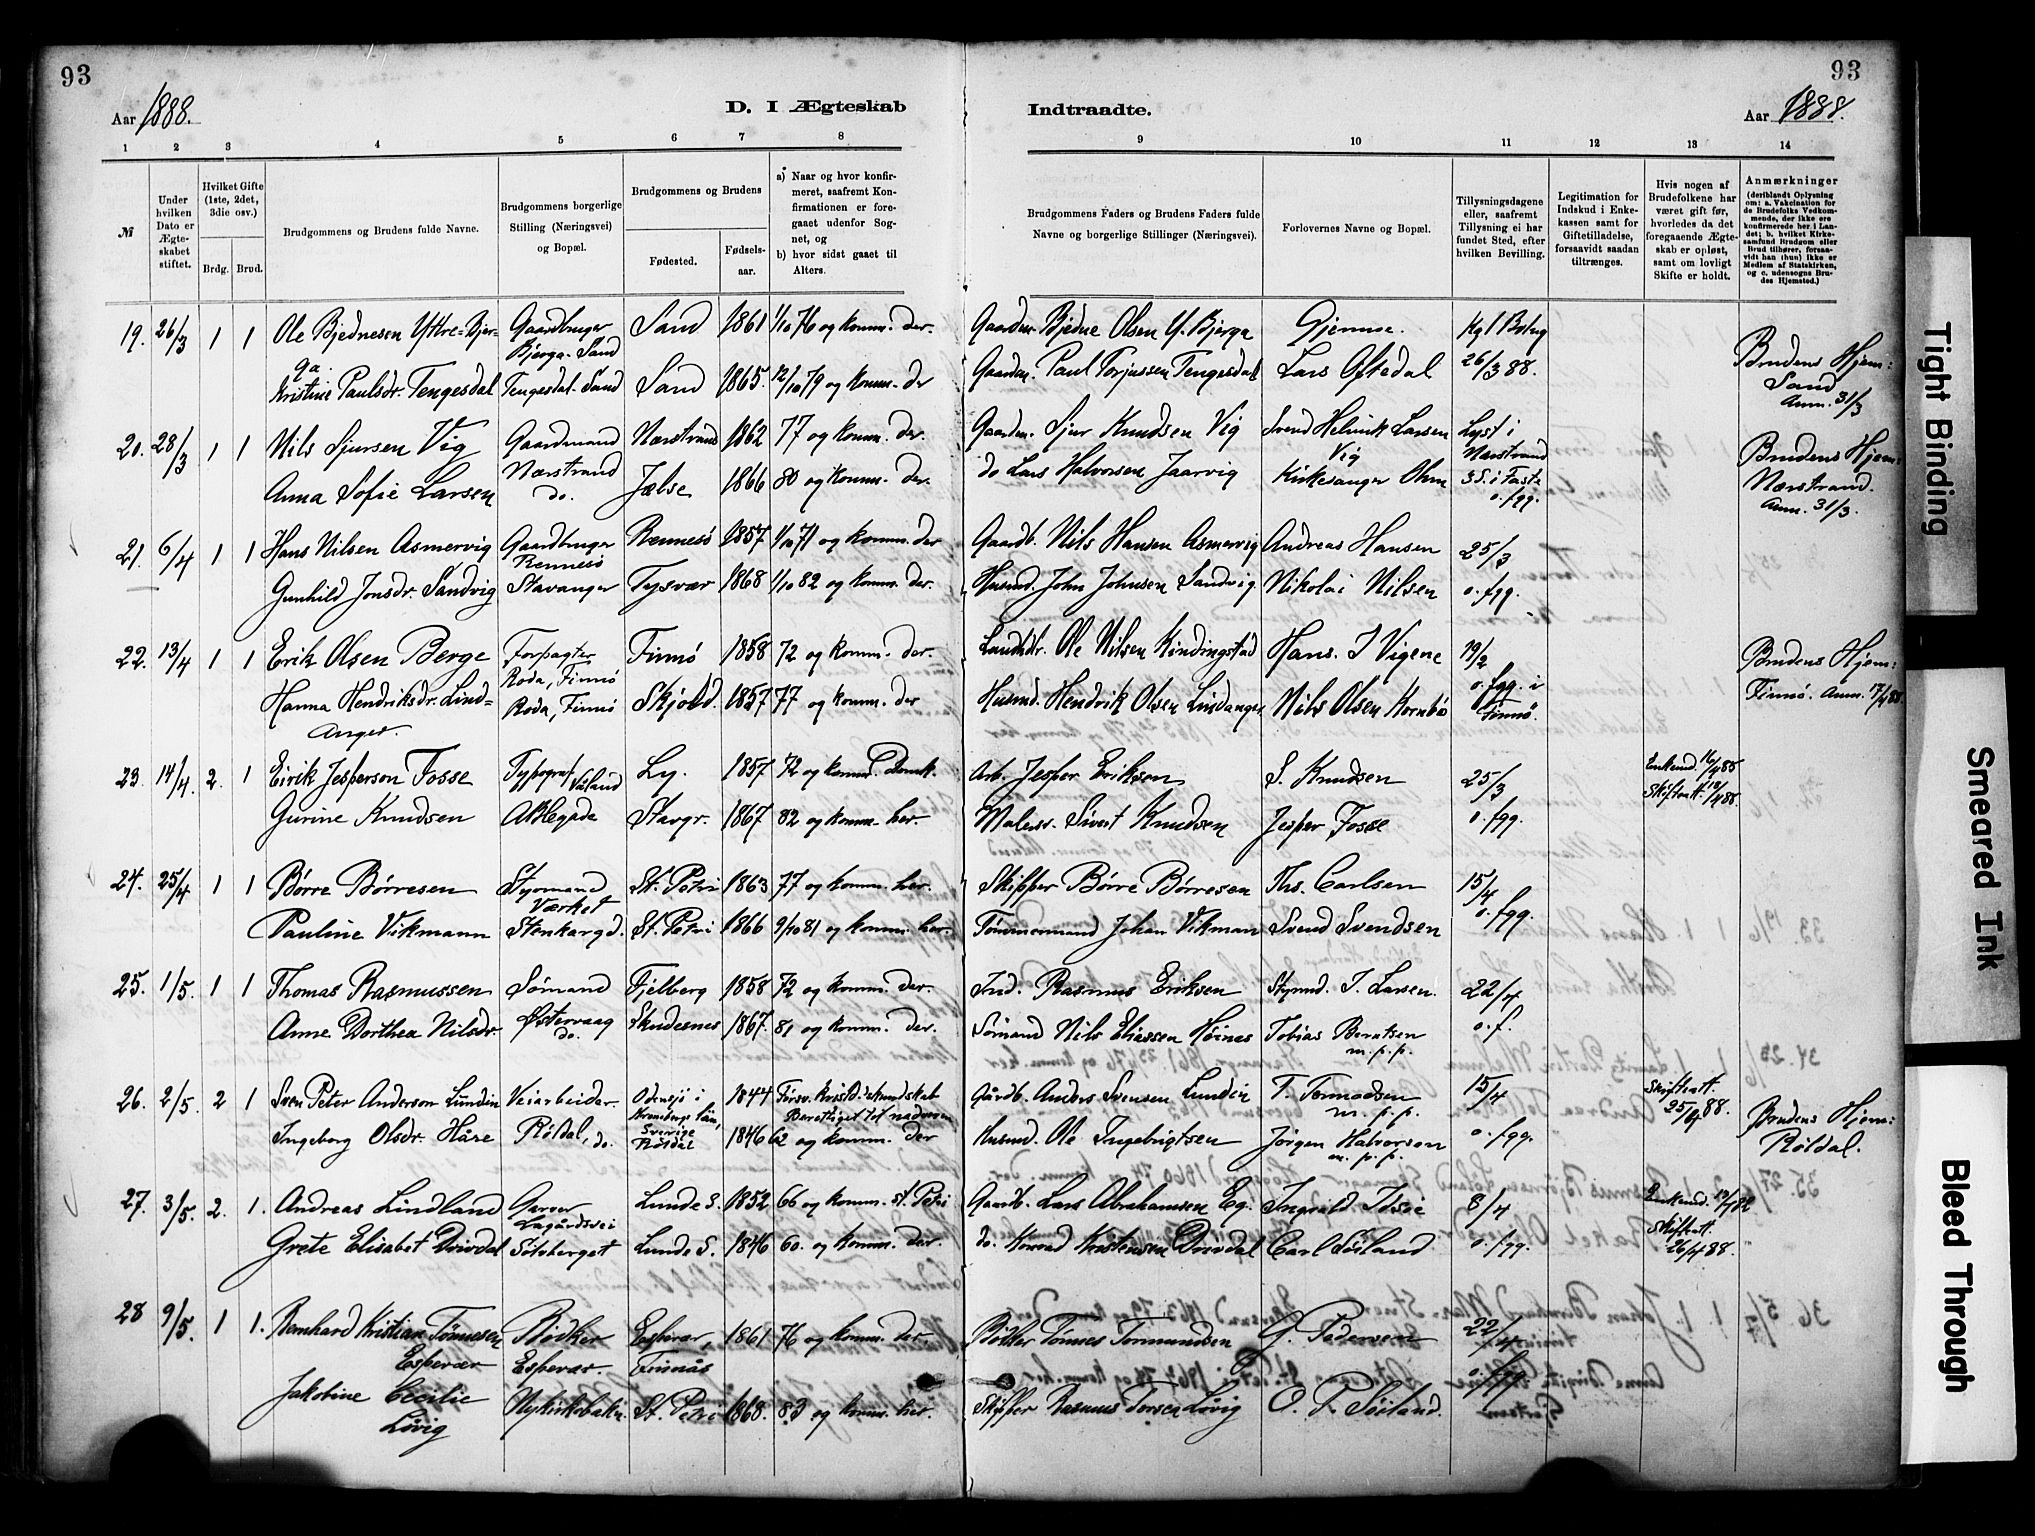 93
93
Aar 1888.
D. I Ægteskab
Indtraadte.
Aar 1888.
1 2 3 4 5 6 7 8 9 10 11 12 13 14
№
Under hvilken Dato er Ægteskabet stiftet.
Hvilket Gifte (1ste, 2det, 3die osv.)
Brdg. Brud.
Brudgommens og Brudens fulde Navne.
Brudgommens borgerlige Stilling (Næringsvei) og Bopæl.
Brudgommens og Brudens
Fødested.
Fødsels-aar.
a) Naar og hvor konfirmeret, saafremt Konfirmationen er foregaaet udenfor Sognet, og
b) hvor sidst gaaet til Alters.
Brudgommens Faders og Brudens Faders fulde Navne og borgerlige Stillinger (Næringsvei).
Forlovernes Navne og Bopæl.
Tillysningsdagene eller, saafremt Tillysning ei har fundet Sted, efter hvilken Bevilling.
Legitimation for Indskud i Enkekassen samt for Giftetilladelse, forsaavidt saadan tiltrænges.
Hvis nogen af Brudefolkene har været gift før, hvorledes da det foregaaende Ægteskab er opløst, samt om lovligt Skifte er holdt.
Anmærkninger
(deriblandt Oplysning om: a. Vakcination for de Brudefolks Vedkommende, der ikke ere konfirmerede her i Landet; b. hvilket Kirkesamfund Brudgom eller Brud tilhører, forsaavidt han (hun) ikke er Medlem af Statskirken, og c. udensogns Brudes Hjemsted.)
19. 26/3 1 1 Ole Bjednesen Yttre-Bjerga. Gaardbruger Bjerga. Sand Sand 1861 1/10 76 og komm. der. Gaardm. Bjedne Olsen Y. Bjerga Gjermoe. Kgl Bevlg
Kristine Paulsdr. Tengesdal Tengesdal. Sand Sand 1865. 12/10 79 og komm. der Gaardm. Paul Torjussen Tengesdal Lars Oftedal 26/3 88. Brudens Hjem: Sand Anm. 31/3
20. 28/3 1 1 Nils Sjursen Vig Gaardmand Nærstrand Nærstrand 1862 77 og komm. der. Gaardm. Sjur Knudsen Vig Svend Helmik Larsen Vig Lyst i Nærstrand
Anna Sofie Larsen do. Jælse 1866 80 og komm. der. do Lars Halvorsen Jaarvig Kirkesanger Ohm 3 S. i Faste o. fgg. Brudens Hjem: Nærstrand. Anm. 31/3.
21. 6/4 1 1 Hans Nilsen Asmervig Gaardbruger Rennesø Rennesø 1857 1/10 71 og komm. der Gaardb. Nils Hansen Asmervig Andreas Hansen 25/3
Gunhild Jonsdr. Sandvig Stavanger Tysvær 1868 1/10 82 og komm. der. Husmd. John Johnsen Sandvig. Nikolai Nilsen o. fgg.
22. 13/4 1 1 Erik Olsen Berge Forpagter Roda, Finnø Finnø 1858 72 og komm. der. Ole Nilsen Kindingstad Hans. I Vigene 19/2
Hanna Hendriksdr. Lindanger. Roda, Finnø Skjold. 1857 77 og komm. der Husmd. Hendrik Olsen Lindanger Nils Olsen Kornbø o. fgg. i Finnø. Brudens Hjem: Finnø. Anm. 17/4 88
23. 14/4. 2. 1 Eirik Jesperson Fosse Typograf Våland Ly. 1857 72 og komm. Domk. Arb. Jesper Erikson S. Knudsen 25/3 Enkemd. 16/4 85
Gurine Knudsen Stavgr. 1867 82 og komm. her. Malersv. Sivert Knudsen Jesper Fosse o. fgg. Skifteatt. 12/4 88.
24. 25/4 1 1 Børre Børresen Styrmand Værket St. Petri 1863 77 og komm. her. Skipper Børre Børresen Ths. Carlsen 15/4
Pauline Vikmann Stenkargd. St. Petri 1866 9/10 81 og komm. her Tømmermand Johan Vikman Svend Svendsen o. fgg.
25. 1/5. 1 1 Thomas Rasmussen Sømand Østervaag Fjelberg 1858 72 og komm. der. Ind. Rasmus Eriksen Styrmd. I. Larsen. 22/4
Anne Dorthea Nilsdr. do. Skudesnes 1867. 81 og komm. der. Sømand Nils Eliassen Høines Tobias Berntsen m. p. p. o. f.
26. 2/5. 2 1 Sven Peter Anderson Lundin Veiarbeider. Odensjö i Kronobergs län, Sverige 1844 Forsv. Kristd.skundskab Berettiget til nadveren Gårdb. Anders Svensen Lundin T. Tormodsen m. p. p. 15/4 Skifteatt. 25/4 88.
Ingeborg Olsdr. Håre Røldal, do. Røldal 1846 62 og komm. der Husmd. Ole Ingebrigtsen Jörgen Halvorson m. p. p. o. fgg. Brudens Hjem: Røldal.
27. 3/5. 2. 1. Andreas Lindland Garver Lagårdsvei Lunde S. 1852 66 og komm. st. Petri Gaardb. Lars Abrahamsen Eg. Ingvald Idsøe 8/4 Enkemd.
Grete Elisabet Drivdal Solaberget Lunde S. 1846 60. og komm. der. do. Konrad Kristensen Drivdal Carl Söiland o. fgg. Skifteatt. 26/4 88.
28 9/5. 1 1. Bernhard Kristian Tønnesen Espevær Bødker Espevær. Espevær, Finnås 1861 76 og komm. der. Bødker Tønnes Tormundsen G. Pedersen 22/4
Jakobine Cecilie Løvig Nykirkebakn. St. Petri 1868. 83 og komm. her. Skipper Rasmus Torsen Løvig O. T. Söiland. o. fgg.
Tight Binding
Smeared Ink
Bleed Through